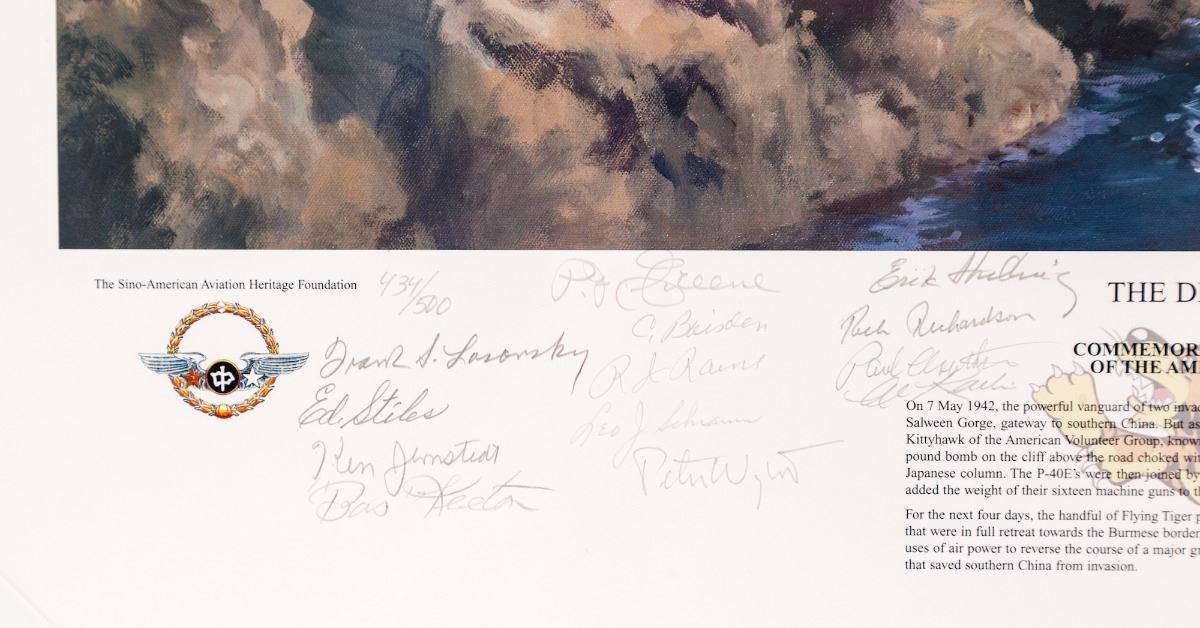 The Sino-American Aviation Heritage Foundation
434/500
中
Frank S. Losonsky
Ed. Stiles
Ken Jernstedt
Buster Keeton
P.J. Greene
C. Baisden
R J Raine
Leo J Schramm
Peter Wright
Erik Shilling
Rich Richardson
Paul
THE D
COMMEMOR
OF THE AM
On 7 May 1942, the powerful vanguard of two inva
Salween Gorge, gateway to southern China. But as
Kittyhawk of the American Volunteer Group, know
pound bomb on the cliff above the road choked wi
Japanese column. The P-40E's were then joined by
added the weight of their sixteen machine guns to t
For the next four days, the handful of Flying Tiger p
that were in full retreat towards the Burmese border
uses of air power to reverse the course of a major g
that saved southern China from invasion.